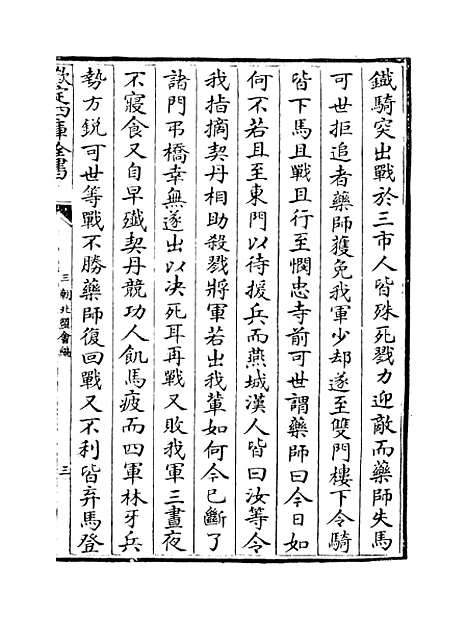 鐵騎突出戰於三市人皆殊死戮力迎敵而藥師失馬
可世拒追者藥師獲免我軍少却遂至雙門樓下令騎
皆下馬且戰且行至憫忠寺前可世謂藥師曰今日如
何不若且至東門以待援兵而燕城漢人皆曰汝等令
我指摘契丹相助殺戮將軍若出我輩如何今已斷了
諸門弔橋幸無遂出以决死耳再戰又敗我軍三晝夜
不寢食又自早殱契丹競功人飢馬疲而四軍林牙兵
勢方銳可世等戰不勝藥師復回戰又不利皆弃馬登
欽定四庫全書
三朝北盟會編
三